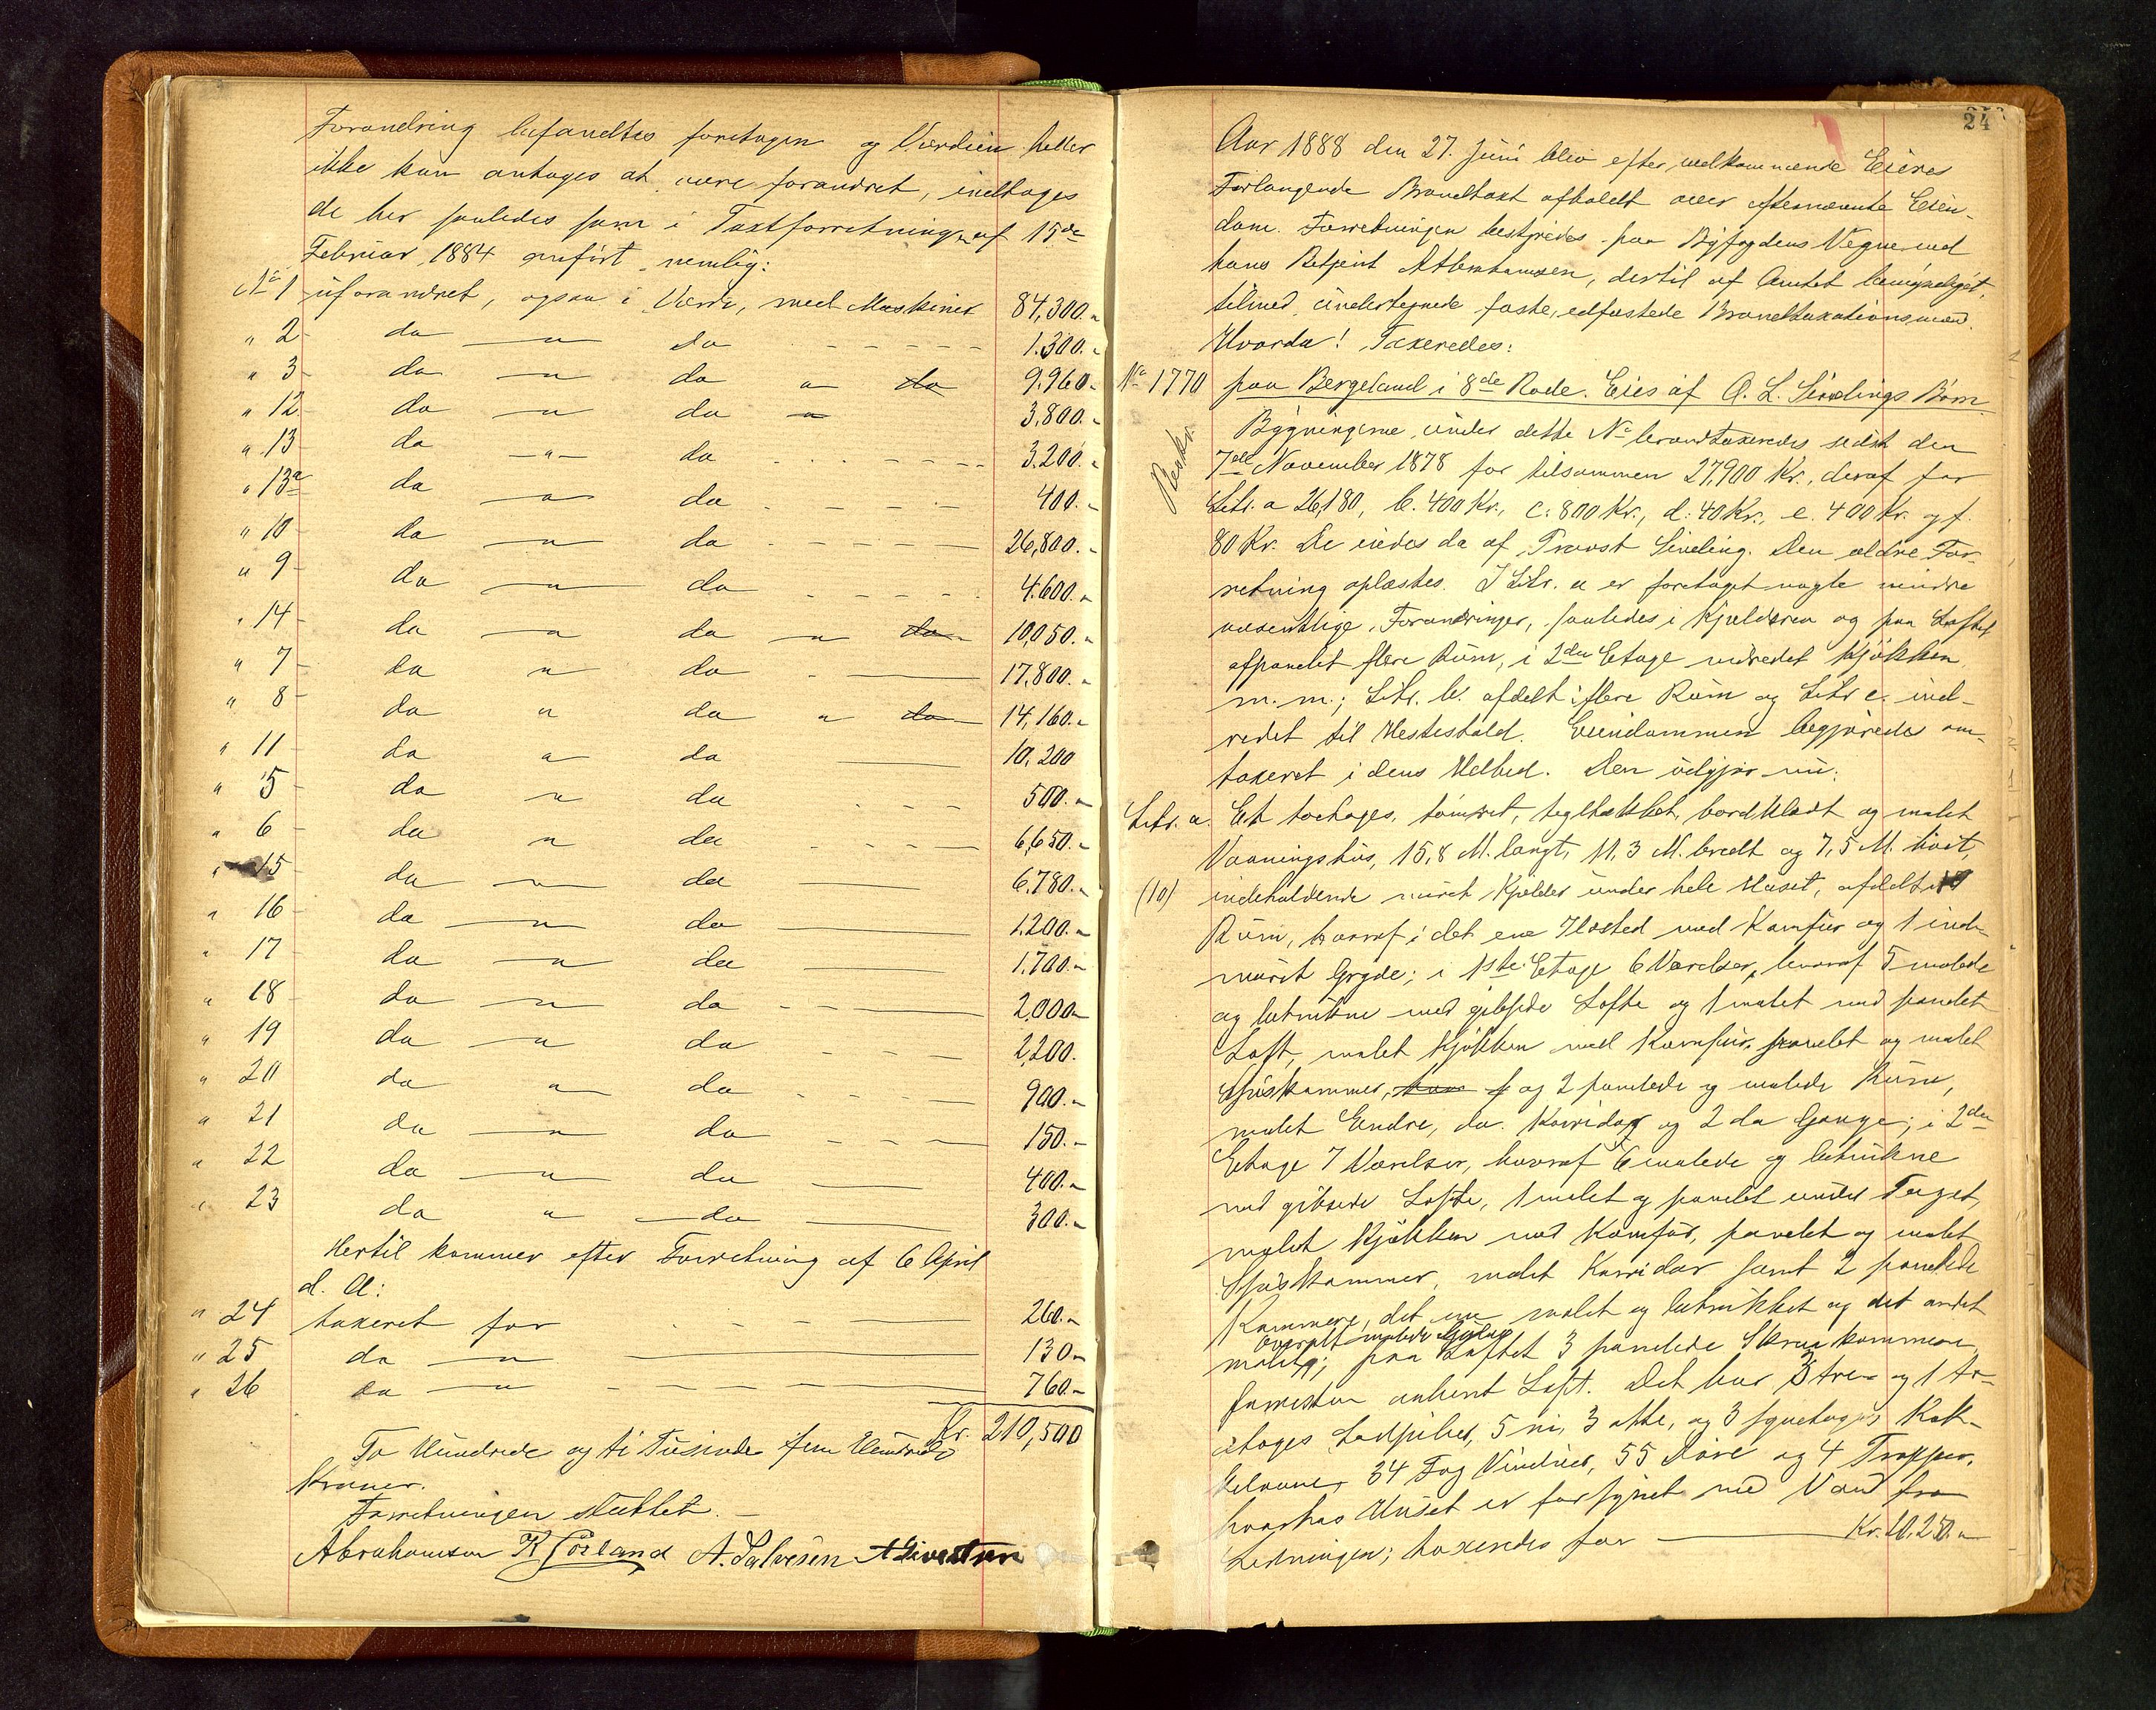 Forandring befandtes foretagen og Værdien heller
ikke kan antages at være forandret, indtages
de her saaledes som i Taxtforretning af 15de
Februar 1884 anført, nemlig:
No 1 uforandret, ogsaa i Værdi, med Maskiner 84,300.„
„ 2 do — „ do - - - - - - 1.300.„
„ 3 do — „ do „ do 9.960.„
„ 12 do — „ do „ 3.800.„
„ 13 do —„— do - - - - - 3.200.„
„ 13a do — „ do - - - - - 400.„
„ 10 do — „ do - - - — — 26,800.„
„ 9 do — „ — do - - - - - 4.600.„
„ 14 do — „ do „ do 10,050.„
„ 7 do „ do - — 17.800.„
„ 8 do „ do „ do 14,160.„
„ 11 do „ do — 10.200
„ 5 do „ do - - - 500.„
„ 6 do „ do - - - - 6,650.„
„ 15 do — „ do — 6.780.„
„ 16 do — „ do — 1.200.„
„ 17 do — „ do — 1.700.„
„ 18 do — „ do - - — 2,000„
„ 19 do — „ do - - - 2,200.
„ 20 do „ do - - - - 900.„
„ 21 do — „ do - - - - 150.„
„ 22 do — „ do — 400.„
„ 23 do „ do — 300.„
Hertil kommer efter Forretning af 6 April
d. A:
„ 24 taxeret for - - - — 260.„
„ 25 do — „ — 130„
„ 26 do — „ - - - — 760„
Kr. 210,500
To Hundrede og ti Tusinde fem Hundrede
Kroner.
Forretningen sluttet. —
Abrahamsen K Sörland A. Salvesen A Sivertsen
24
Aar 1888 den 27. Juni blev efter vedkommende Eieres
Forlangende Brandtaxt afholdt over efternævnte Eien-
dom. Forretningen bestyredes paa Byfogdens Vegne ved
hans Betjent Abrahamsen, dertil af Amtet bemyndiget,
tilmed undertegnede faste, edfæstede Brandtaxationsmænd.
Hvorda! Taxeredes:
No 1770 paa Bergeland i 8de Rode. Eies af A. L. Sindings Børn.
Beskr.
Bygningerne under dette No brandtaxeredes sidst den
7de November 1878 for tilsammen 27,900 Kr., deraf for
Litr. a 26,180, b. 400 Kr., c. 800 Kr., d. 40 Kr., e. 400 Kr. og f.
80 Kr. De eiedes da af Provst Sinding. Den ældre For-
retning oplæstes. I Litr. a er foretaget nogle mindre
væsentlige Forandringer, saaledes i Kjælderen og paa Loftet
afpanelet flere Rum, i 2den Etage indredet Kjøkken
m. m.; Litr. b. afdelt i flere Rum og Litr e. ind-
redet til Hestestald. Eiendommen begjæredes om-
taxeret i dens Helhed. Den udgjør nu:
Litr. a. Et toetages, tømret, tegltækket, bordklædt og malet
Vaaningshus, 15,8 M. langt, 11,3 M. bredt og 7,5 M. høit,
(10) indeholdende muret Kjelder under hele Huset, afdelt i 10
Rum, hvoraf i det ene Ildsted med Komfur og 1 ind-
muret Gryde; i 1ste Etage 6 Værelser, hvoraf 5 malede
og betrukne med gibsede Lofte og 1 malet med panelet
Loft, malet Kjøkken med Komfur, panelet og malet
Spiskammer, og 2 panelede og malede Rum,
malet Entre, do. Korridor og 2 do Gange; i 2den
Etage 7 Værelser, hvoraf 6 malede og betrukne
med gibsede Lofte, 1 malet og panelet under Taget,
malet Kjøkken med Komfur, panelet og malet
Spiskammer, malet Korridor samt 2 panelede
Kammere, det ene malet og betrukket og det andet
overalt malede Gulve
malet; paa Loftet 3 panelede Skraakammere,
forresten aabent Loft. Det har 3 tre- og 1 to-
etages Ladpiber, 5 ni, 3 otte, og 3 syvetages Kak-
kelovne, 34 Fag Vinduer, 55 Døre og 4 Trapper,
hvorhos Huset er forsynet med Vand fra
Ledningen; taxeredes for — Kr. 20.250.„